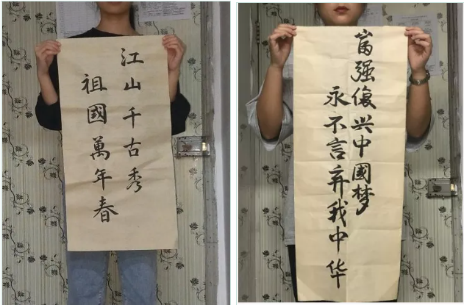 江山千古秀
祖國萬年春
富强復兴中國梦
永不言弃我中华